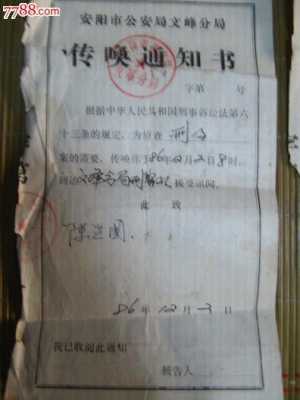 7788.com
安阳市公安局文峰分局
传唤通知书
字第 号
根据中华人民共和国刑事诉讼法第六
十三条的规定，为侦查 刑事
案的需要，传唤你于86年12月2日8时，
到达文峰分局刑警队接受讯问。
此致
陈
86年12月 日
我已收阅此通知
被告人